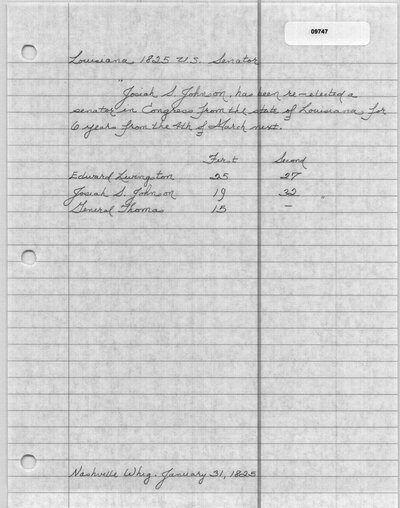 09747
Louisiana 1825 U.S. Senator
"Josiah S. Johnson, has been re-elected a
senator in Congress from the state of Louisiana for
6 years from the 4th of March next.
First Second
Edward Livingston 25 27
Josiah S. Johnson 19 32 "
General Thomas 15 -
Nashville Whig. January 31, 1825